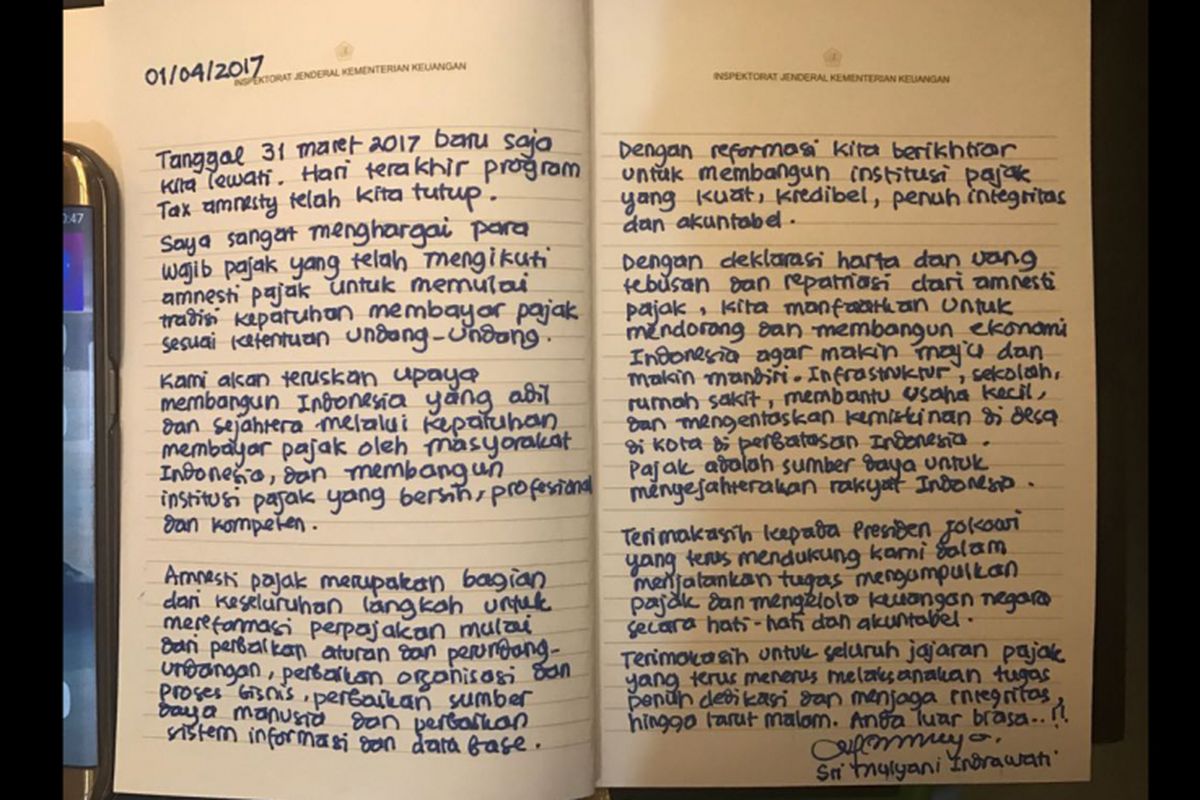 0:47
01/04/2017
INSPEKTORAT JENDERAL KEMENTERIAN KEUANGAN
Tanggal 31 maret 2017 baru saja
kita lewati. Hari terakhir program
Tax amnesty telah kita tutup.
Saya sangat menghargai para
wajib pajak yang telah mengikuti
amnesti pajak untuk memulai
tradisi kepatuhan membayar pajak
sesuai ketentuan undang-undang.
Kami akan teruskan upaya
membangun Indonesia yang adil
dan sejahtera melalui kepatuhan
membayar pajak oleh masyarakat
Indonesia, dan membangun
institusi pajak yang bersih, profesional
dan kompeten.
Amnesti pajak merupakan bagian
dari keseluruhan langkah untuk
mereformasi perpajakan mulai
dari perbaikan aturan dan perundang-
undangan, perbaikan organisasi dan
proses bisnis, perbaikan sumber
daya manusia dan perbaikan
sistem informasi dan data base.
INSPEKTORAT JENDERAL KEMENTERIAN KEUANGAN
Dengan reformasi kita berikhtiar
untuk membangun institusi pajak
yang kuat, kredibel, penuh integritas
dan akuntabel.
Dengan deklarasi harta dan uang
tebusan dan repatriasi dari amnesti
pajak, kita manfaatkan untuk
mendorong dan membangun ekonomi
Indonesia agar makin maju dan
makin mandiri. Infrastruktur, sekolah,
rumah sakit, membantu usaha kecil,
dan mengentaskan kemiskinan di desa
di kota di perbatasan Indonesia.
Pajak adalah sumber daya untuk
mengejahterakan rakyat Indonesia.
Terimakasih kepada Presiden Jokowi
yang terus mendukung kami dalam
menjalankan tugas mengumpulkan
pajak dan mengelola keuangan negara
secara hati-hati dan akuntabel.
Terimakasih untuk seluruh jajaran pajak
yang terus menerus melaksanakan tugas
penuh dedikasi dan menjaga integritas,
hingga larut malam. Anda luar biasa..!!
Sri Mulyani Indrawati